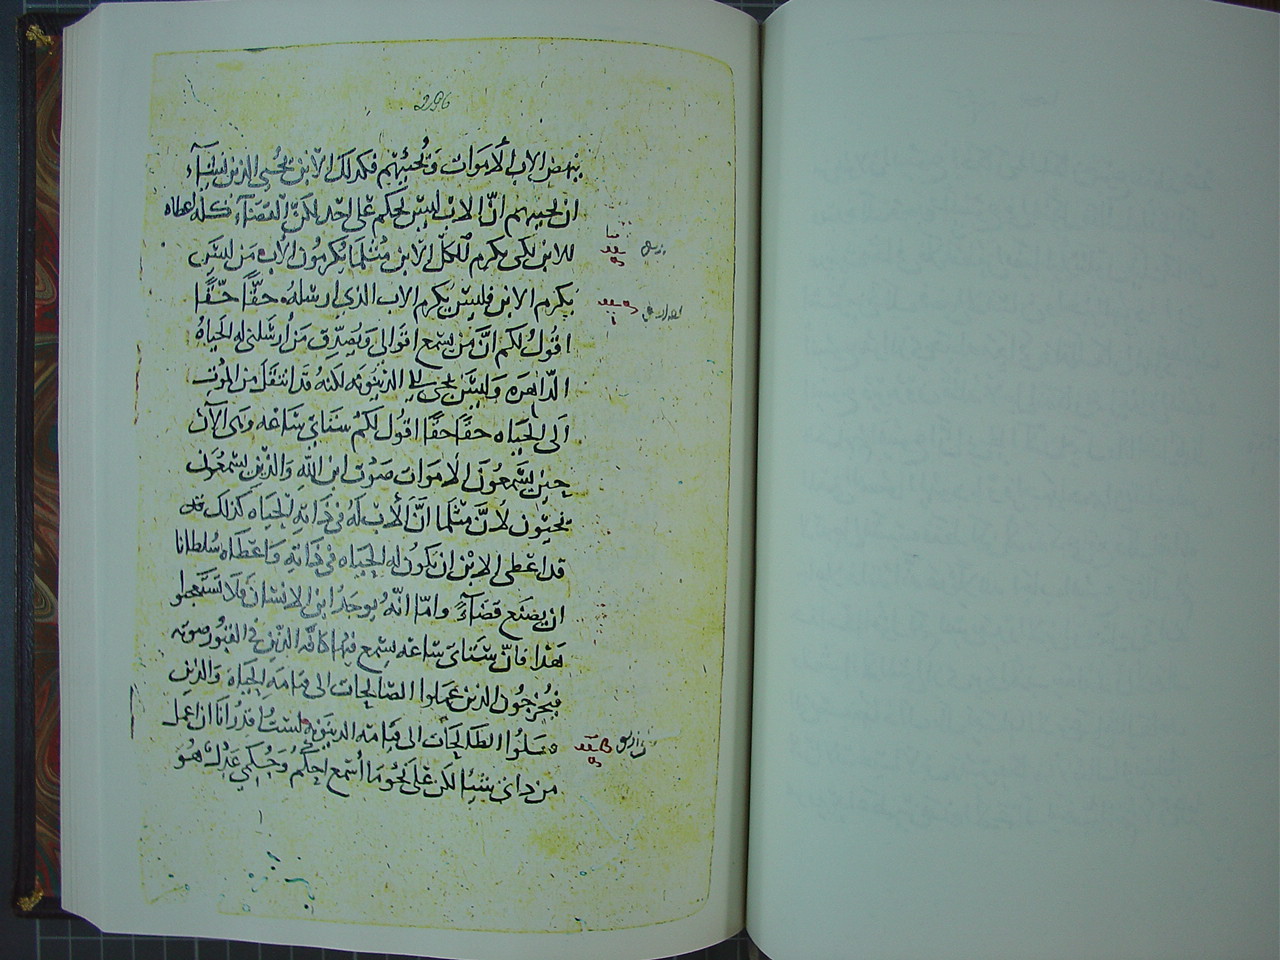 296
ينهض الاب الأموات وَيُحييهم فكذلك الابن يحيي الذين يشاء
ان يحييهم انّ الاب ليس يحكم على احد لكن القضاء كله اعطاه
للابن لكى يكرم الكل الابن مثلما يكرمون الأب من ليس
يكرم الابن فليس يكرم الاب الذي ارسله حقًّا حقًّا
اقول لكم انَّ من يسمع اقوالى ويُصدّق من أرسلنى له الحياهُ
الدّاهره وليس يجى الى الدينونه لكنه قد انتقل من الموت
الى الحياه حقًّا حقًّا اقول لكم ستاتى ساعه وهى الآن
حين يسمعون الاموات صوت ابن الله والذين يسمعون
يحيون لانَّ مثلما انَّ الأب له فى ذاته الحياه كذلك
قد اعطى الابن ان يكون له الحياه فى ذاته واعطاه سُلطانا
ان يصنع قضاءً وامّا انّه يوجد ابن الانسان فلا تستعجبوا
هذا فانّ ستاتى ساعه يسمع فيها كافّه الذين فى القبور صوته
فيخرجون الذين عملوا الصالحات الى قيامه الحياه والذين
عملوا الطالحات الى قيامه الدينونه لست اقدر انا ان اعمل
من ذاتى شيئا لكن على نحو ما أسمع احكم وحكمي عدل هو